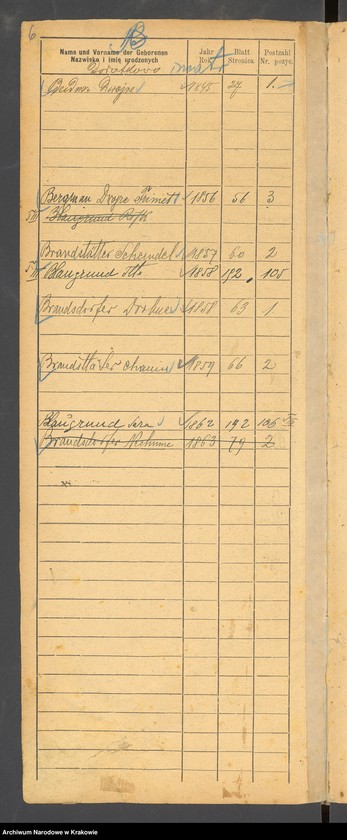 6
B
Name und Vorname der Geborenen
Nazwisko i imię urodzonych
Jahr
Rok
Blatt
Stronica
Postzahl
Nr. pozyc.
1848 27 1
Bergman 1856 56 3
Blaugrund
Brandstätter Scheindel 1857 60 2
Blaugrund 1858 192 105
Brandsdorfer 1858 63 1
Brandstätter 1859 66 2
Blaugrund Sara 1862 192 106
Brandsdorfer Nechume 1863 79 2
Archiwum Narodowe w Krakowie